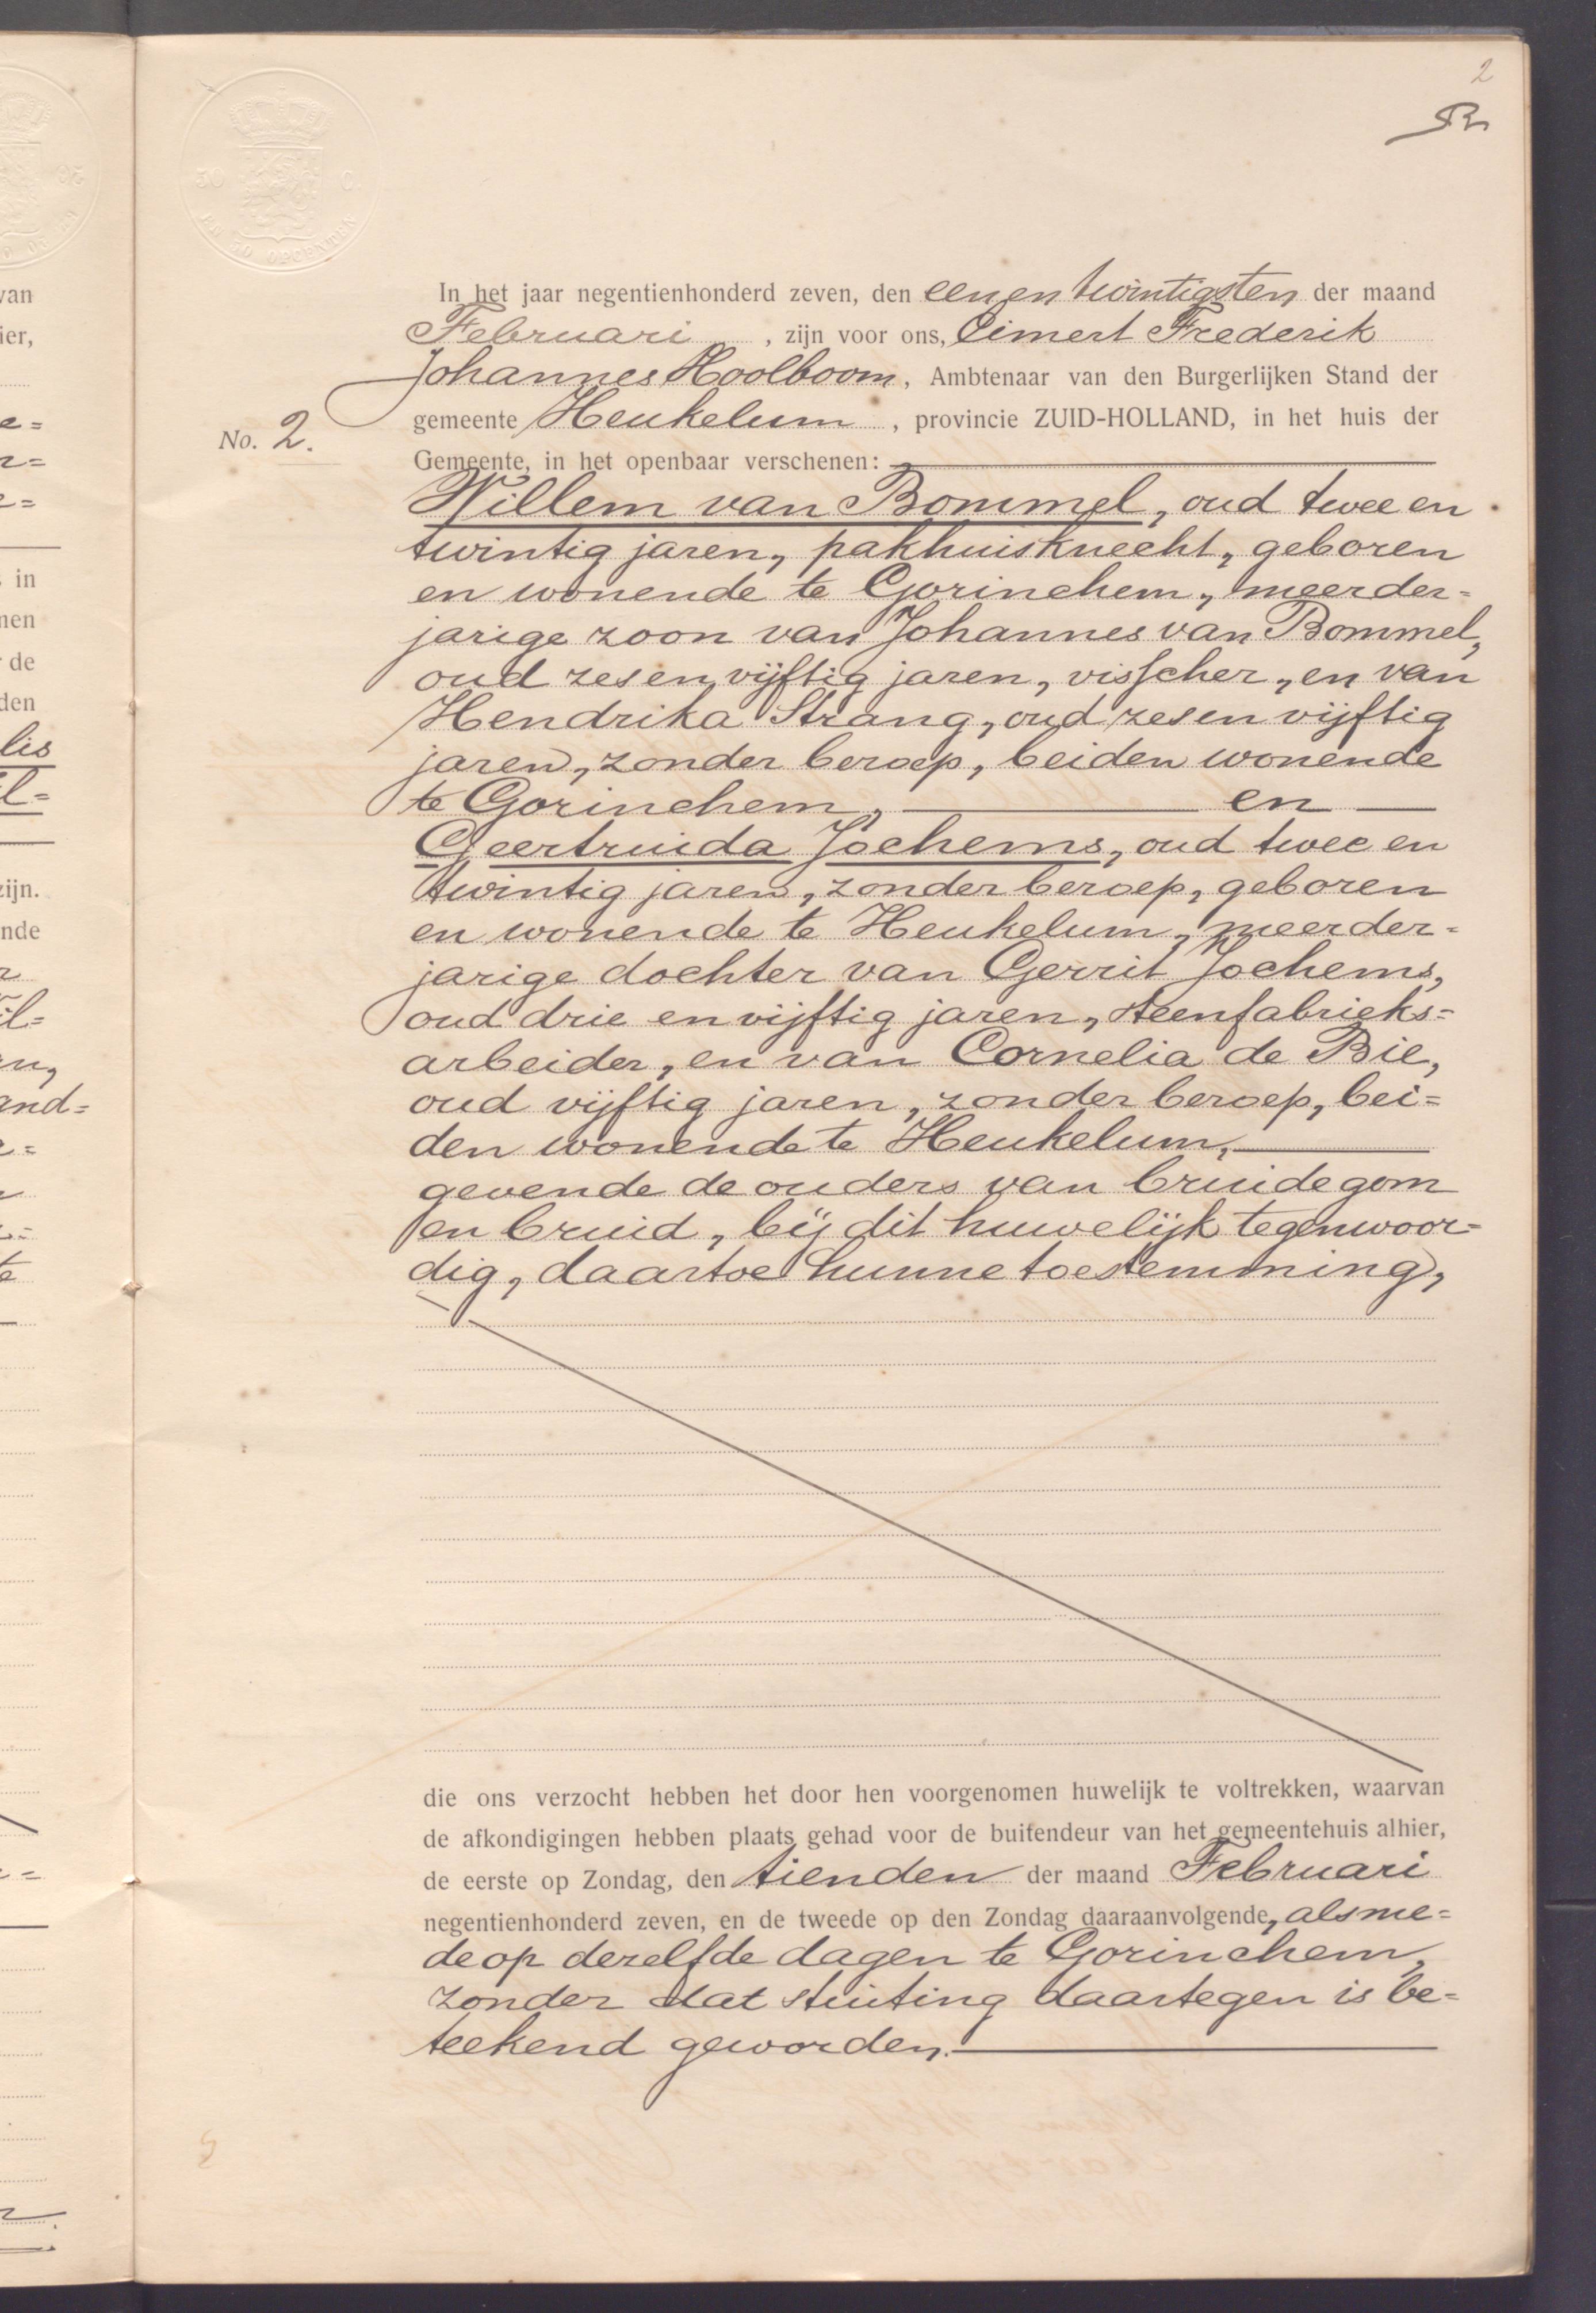 2
No. 2.
In het jaar negentienhonderd zeven, den een en twintigsten der maand
Februari, zijn voor ons, Eimert Frederik
Johannes Koolboom, Ambtenaar van den Burgerlijken Stand der
gemeente Heukelum, provincie ZUID-HOLLAND, in het huis der
Gemeente, in het openbaar verschenen:
Willem van Bommel, oud twee en
twintig jaren, pakhuisknecht, geboren
en wonende te Gorinchem, meerder=
jarige zoon van Johannes van Bommel,
oud zes en vijftig jaren, visscher, en van
Hendrika Strang, oud zes en vijftig
jaren, zonder beroep, beiden wonende
te Gorinchem, en
Geertruida Jochems, oud twee en
twintig jaren, zonder beroep, geboren
en wonende te Heukelum, meerder=
jarige dochter van Gerrit Jochems,
oud drie en vijftig jaren, steenfabrieks=
arbeider, en van Cornelia de Bie,
oud vijftig jaren, zonder beroep, bei=
den wonende te Heukelum,
gevende de ouders van bruidegom
en bruid, bij dit huwelijk tegenwoor=
dig, daartoe hunne toestemming,
die ons verzocht hebben het door hen voorgenomen huwelijk te voltrekken, waarvan
de afkondigingen hebben plaats gehad voor de buitendeur van het gemeentehuis alhier,
de eerste op Zondag, den tienden der maand Februari
negentienhonderd zeven, en de tweede op den Zondag daaraanvolgende, alsme=
de op dezelfde dagen te Gorinchem,
zonder dat stuiting daartegen is be=
teekend geworden.